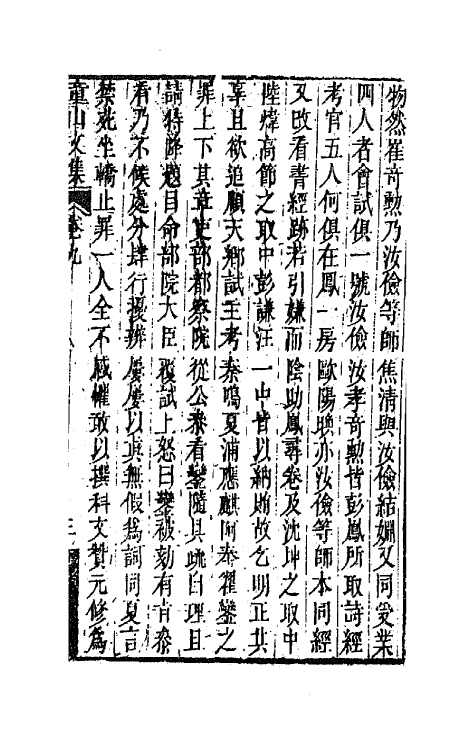 物然崔奇勲乃汝儉等師焦清與汝儉結婣又同受業
四人者會試俱一號汝儉汝孝奇勲皆彭鳳所取詩經
考官五人何俱在鳳一房歐陽㬇亦汝儉等師本同經
又改看書經跡若引嫌而陰助鳳尋卷及沈坤之取中
陸煒高節之取中彭謙汪一中皆以納賄故乞明正其
辜且欲追順天鄉試主考秦鳴夏浦應麒阿奉翟鑾之
罪上下其章吏部都察院從公叅看鑾隨具疏自理且
請特降題目命部院大臣覆試上怒曰鑾被劾有旨叅
看乃不候處分肆行擾辨屢屢以真無假為詞同夏言
禁苑坐轎止罪一人全不感懼敢以撰科文贊元修為
童山文集 卷九 三